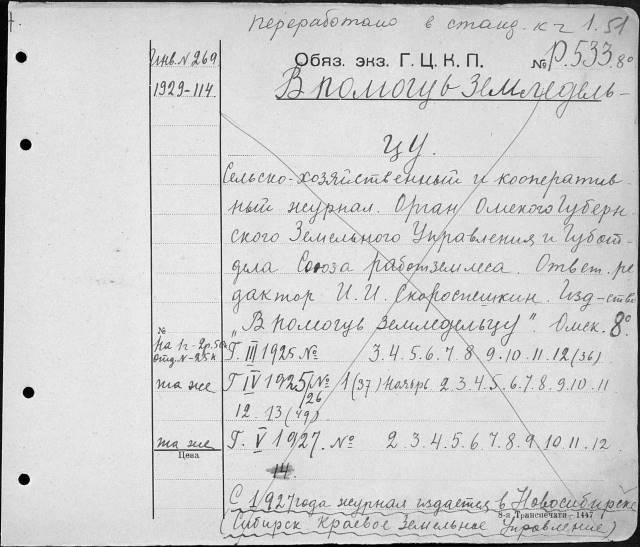 переработано в станд. к-г 1.51
Инв. N 269
Обяз. экз. Г. Ц. К. П.
№ Р.533 8°
1929-114
В помощь земледель-
цу.
Сельско-хозяйственный и кооператив-
ный журнал. Орган Омского Губерн
ского Земельного Управления и Губот-
дела Союза работземлеса. Ответ. ре-
дактор И. И. Скороспешкин. Изд-ство
„В помощь земледельцу". Омск. 8°
№
на 1 г - 2 р. 50 к
отд. N - 25 к
Г. III 1925 № 3. 4. 5. 6. 7. 8. 9. 10. 11. 12 (36)
та же
Г IV 1925/26 № 1 (37) Ноябрь 2. 3. 4. 5. 6. 7. 8. 9. 10. 11
12. 13 (49)
та же
Г. V 1927. № 2. 3. 4. 5. 6. 7. 8. 9 10. 11. 12
Цена
14.
С 1927 года журнал издается в Новосибирске
8-я Транспечати 1447
(Сибирск Краевое Земельное Управление)